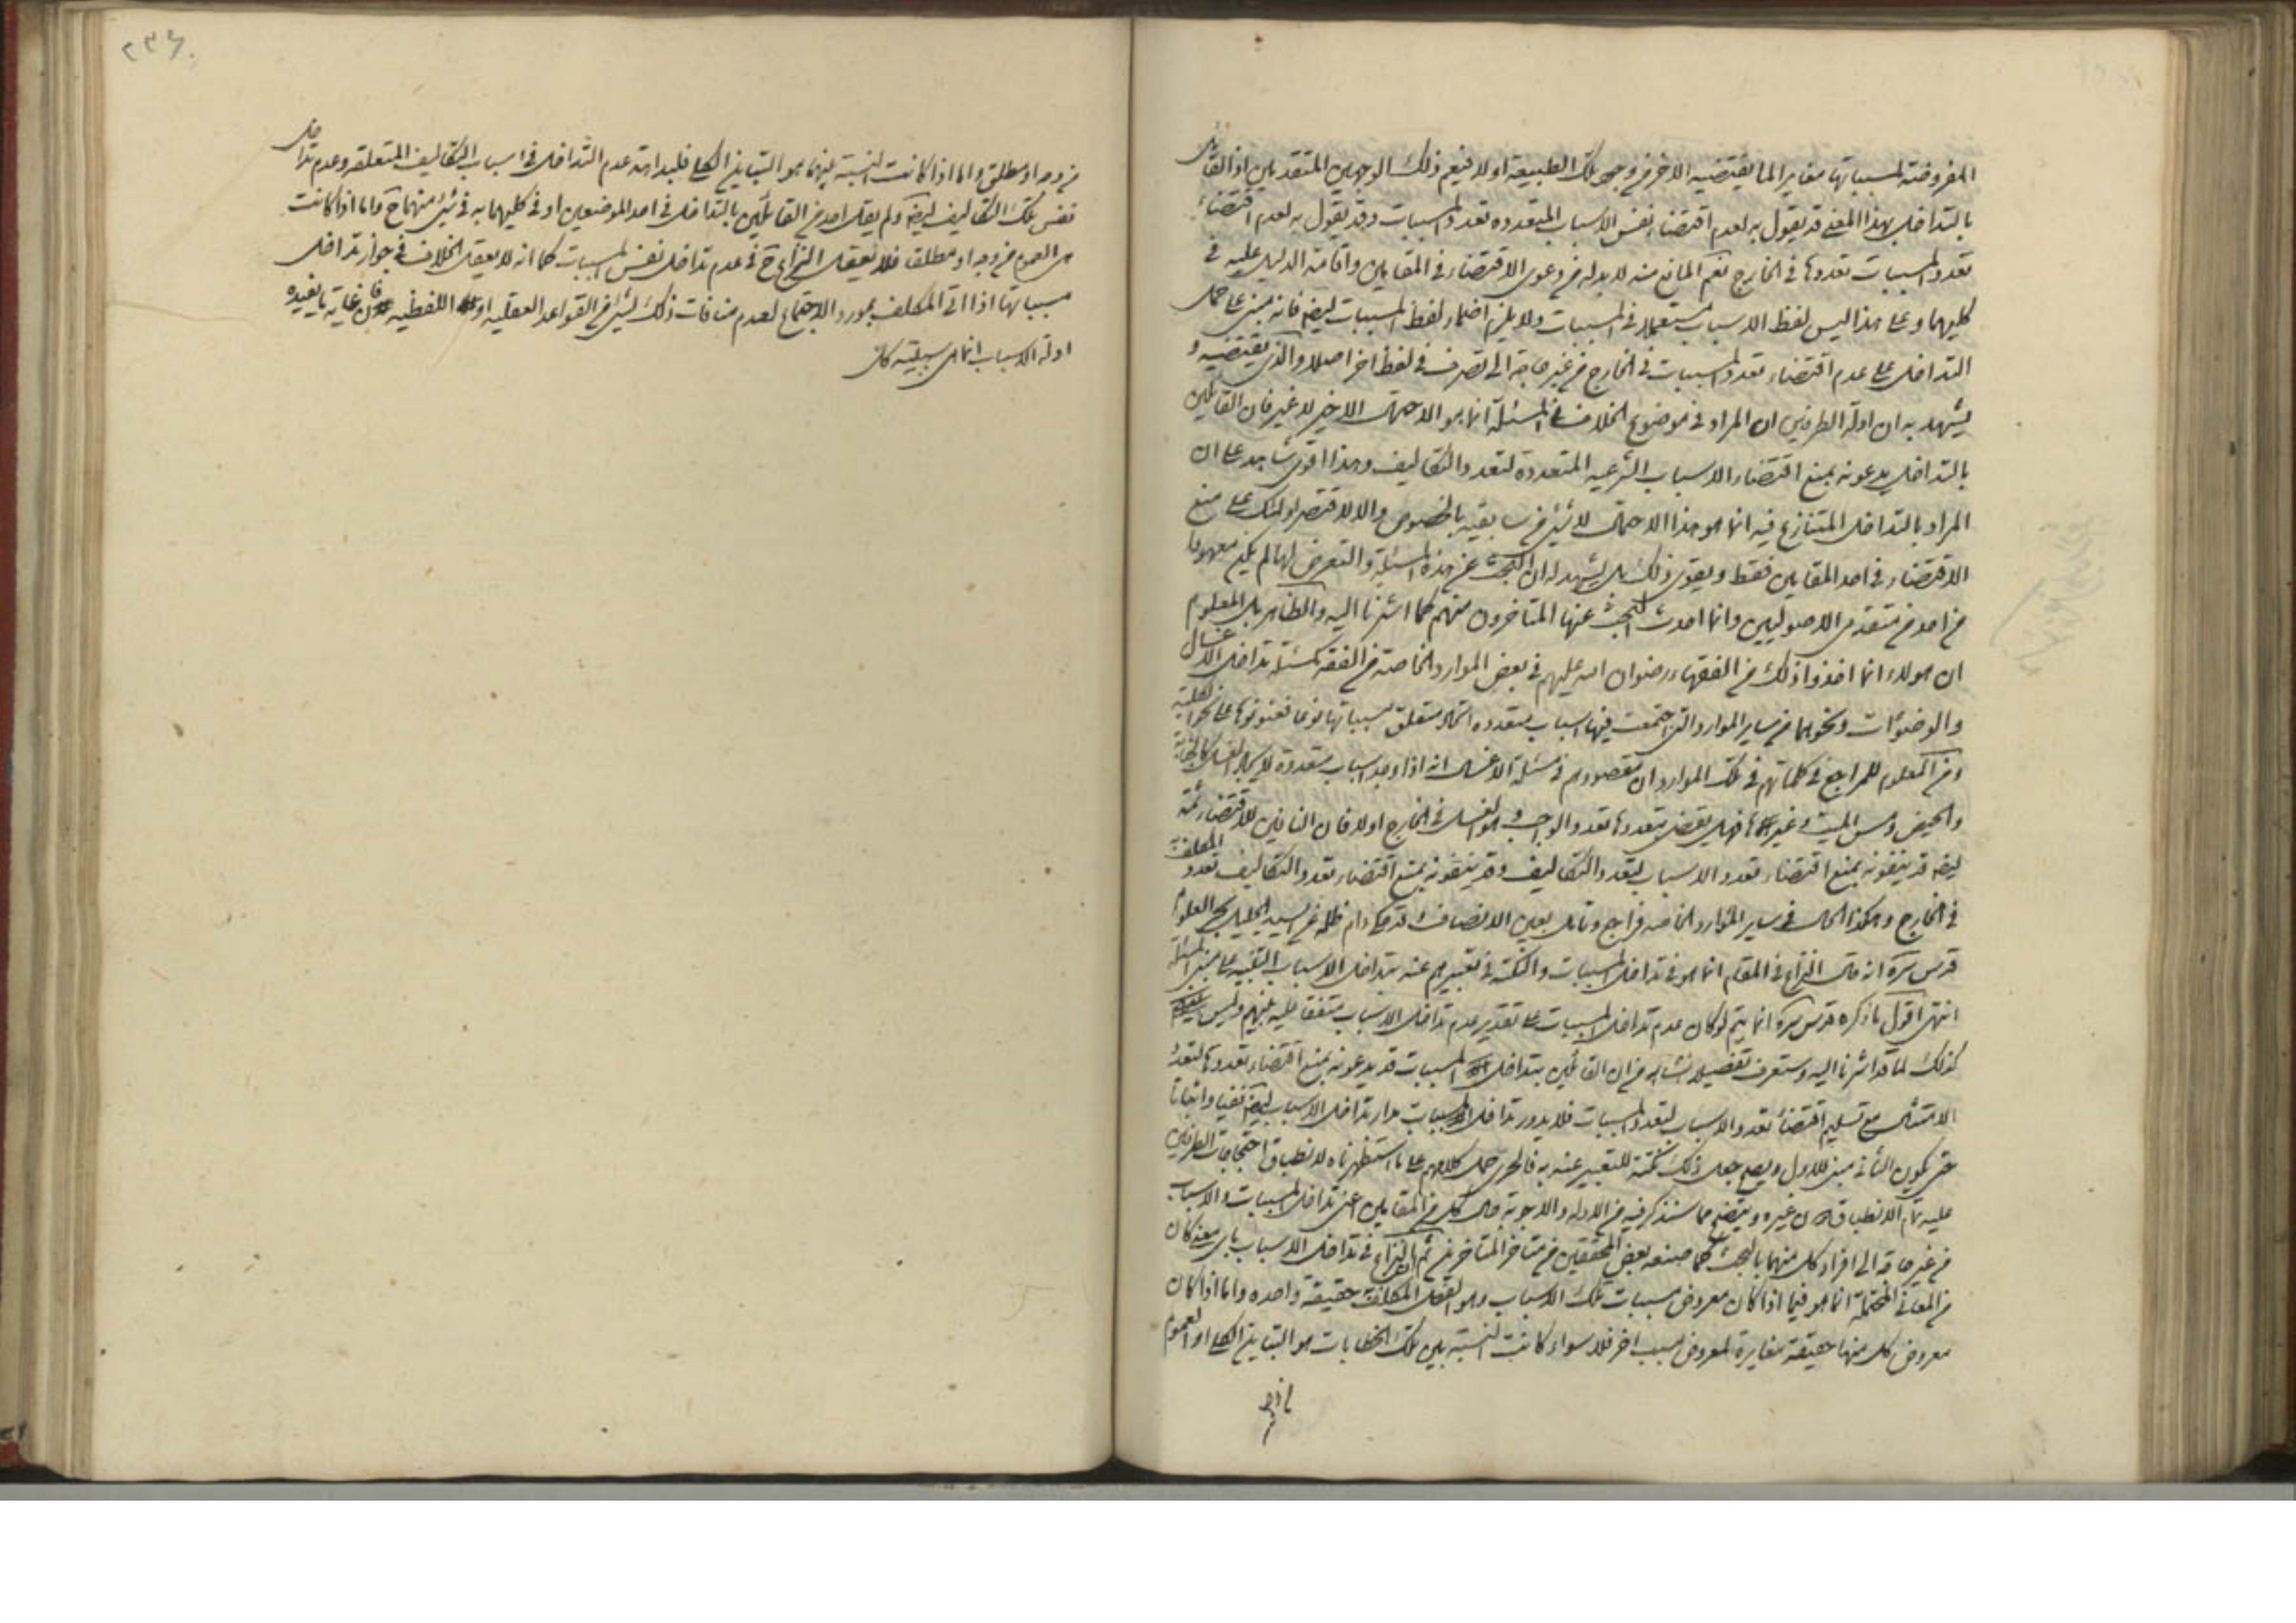 المفروضة لمسبباتها مغاير لما يقتضيه الاخر من وجود تلك الطبيعة اولا فيعم ذلك الوجهين المتقدمين اذ القائل
بالتداخل بهذا المعنى قد يقول به لعدم اقتضاء نفس الاسباب المتعدده تعدد المسببات وقد يقول به لعدم اقتضاء
تعدد المسببات تعددها في الخارج نعم المانع منه لا بد له من دعوى الاقتضاء في المقامين واقامة الدليل عليه في
كليهما وعلى هذا ليس لفظ الاسباب مستعملا في المسببات ولا يلزم اضمار لفظ المسببات ايضا فانه مبنى على حمل
التداخل على عدم اقتضاء تعدد المسببات في الخارج من غير حاجة الى تصرف في لفظ اخر اصلا والذي يقتضيه و
يشهد به ان ادلة الطرفين ان المراد في موضوع الخلاف في المسئلة انما هو الاحتمال الاخير لا غير فان القائلين
بالتداخل يدعونه بمنع اقتضاء الاسباب الشرعيه المتعددة لتعدد التكاليف وهذا اقوى شاهد على ان
المراد بالتداخل المتنازع فيه انما هو هذا الاحتمال لا شيئ من سابقيه بالخصوص والا لاقتصر اولئك على منع
الاقتضاء في احد المقامين فقط ويقوى ذلك بل يشهد له ان البحث عن هذه المسئلة والتعرض لها لم يكن معهودا
من احد من متقدمى الاصوليين وانما احدث البحث عنها المتاخرون منهم كما اشرنا اليه والظاهر بل المعلوم
ان هولاء انما اخذوا ذلك من الفقهاء رضوان الله عليهم في بعض الموارد الخاصة من الفقه كمسئلة تداخل الاغسال
والوضوئات ونحوهما من ساير الموارد التي اجتمعت فيها اسباب متعدده اتحد متعلق مسبباتها نوعا فعنونوها على نحو الكلية
ومن المعلوم للمراجع في كلماتهم في تلك الموارد ان مقصودهم في مسئلة الاغسال انه اذا وجد اسباب متعددة للغسل كالجنابة
والحيض ومس الميت وغيرها فهل يقتضى تعددها تعدد الواجب وهو الغسل في الخارج اولا فان النافين للاقتضاء ثمة
ايضا قد ينفونه بمنع اقتضاء تعدد الاسباب لتعدد التكاليف وقد ينفونه بمنع اقتضاء تعدد التكاليف تعدد المكلف به
في الخارج وهكذا الحال في ساير الموارد الخاصه فراجع وتامل بعين الانصاف قد حكى دام ظله عن السيد الجليل بحر العلوم
قدس سره انه قال النزاع في المقام انما هو في تداخل المسببات والنكتة في تعبيرهم عنه بتداخل الاسباب التنبيه على مبنى المسئلة
انتهى اقول ما ذكره قدس سره انما يتم لو كان عدم تداخل المسببات على تقدير عدم تداخل الاسباب متفقا عليه بينهم وليس
كذلك لما قد اشرنا اليه وستعرف تفصيله انشاء الله من ان القائلين بتداخل المسببات قد يدعونه بمنع اقتضاء تعددها لتعدد
الامتثال مع تسليم اقتضاء تعدد الاسباب لتعدد المسببات فلا يدور تداخل المسببات مدار تداخل الاسباب ايضا نفيا واثباتا
حتى يكون الثاني مبنى للاول ويصح جعل ذلك نكتة للتعبير عنه به فالحرى حمل كلامهم على ما استظهرناه لانطباق احتجاجات الطرفين
عليه تمام الانطباق دون غيره ويتضح مما سنذكر فيه من الادلة والاجوبة حال كل من المقامين اعنى تداخل المسببات والاسباب
من غير حاجة الى افراد كل منهما بالبحث كما صنعه بعض المحققين من متاخر المتاخرين ثم النزاع في تداخل الاسباب باى معنى كان
من المعاني المحتملة انما هو فيما اذا كان معروض مسببات تلك الاسباب وهو الفعل المكلف به حقيقة واحده واما اذا كان
معروض كل منها حقيقة مغايرة لمعروض مسبب اخر فلا سواء كانت النسبة بين تلك الخطابات هو التباين الكلى او العموم
من وجه
٢٣٤
من وجه او مطلق واما اذا كانت النسبة بينهما هو التباين الكلى فلبداهة عدم التداخل في اسباب التكاليف المتعلقة وعدم تداخل
نفس تلك التكاليف ايضا ولم يقل احد من القائلين بالتداخل في احد الموضعين او في كليهما به في شيئ منهما ح واما اذا كانت
هى العموم من وجه او مطلقا فلا يعقل النزاع ح في عدم تداخل نفس المسببات كما انه لا يعقل الخلاف في جواز تداخل
مسبباتها اذا اتى المكلف بمورد الاجتماع لعدم منافات ذلك لشيئ من القواعد العقليه او اللفظيه فان غاية ما يفيده
ادلة الاسباب انما هى سببية كل